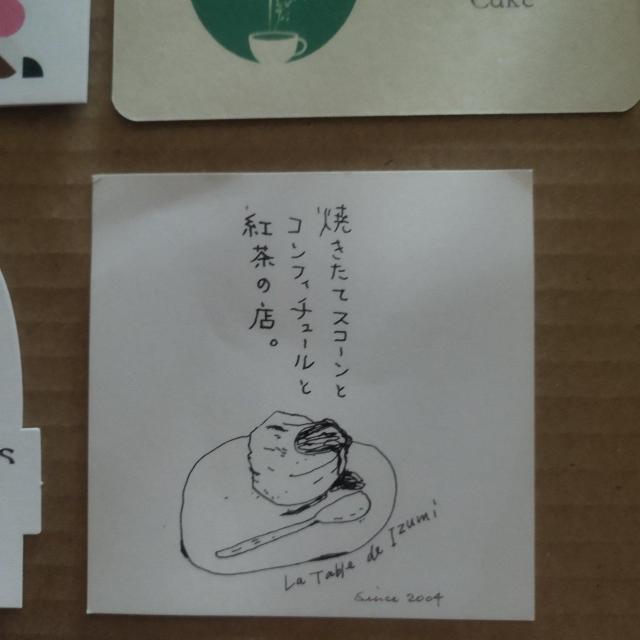 Cake
焼きたてスコーンと
コンフィチュールと
紅茶の店。
La Table de Izumi
Since 2004